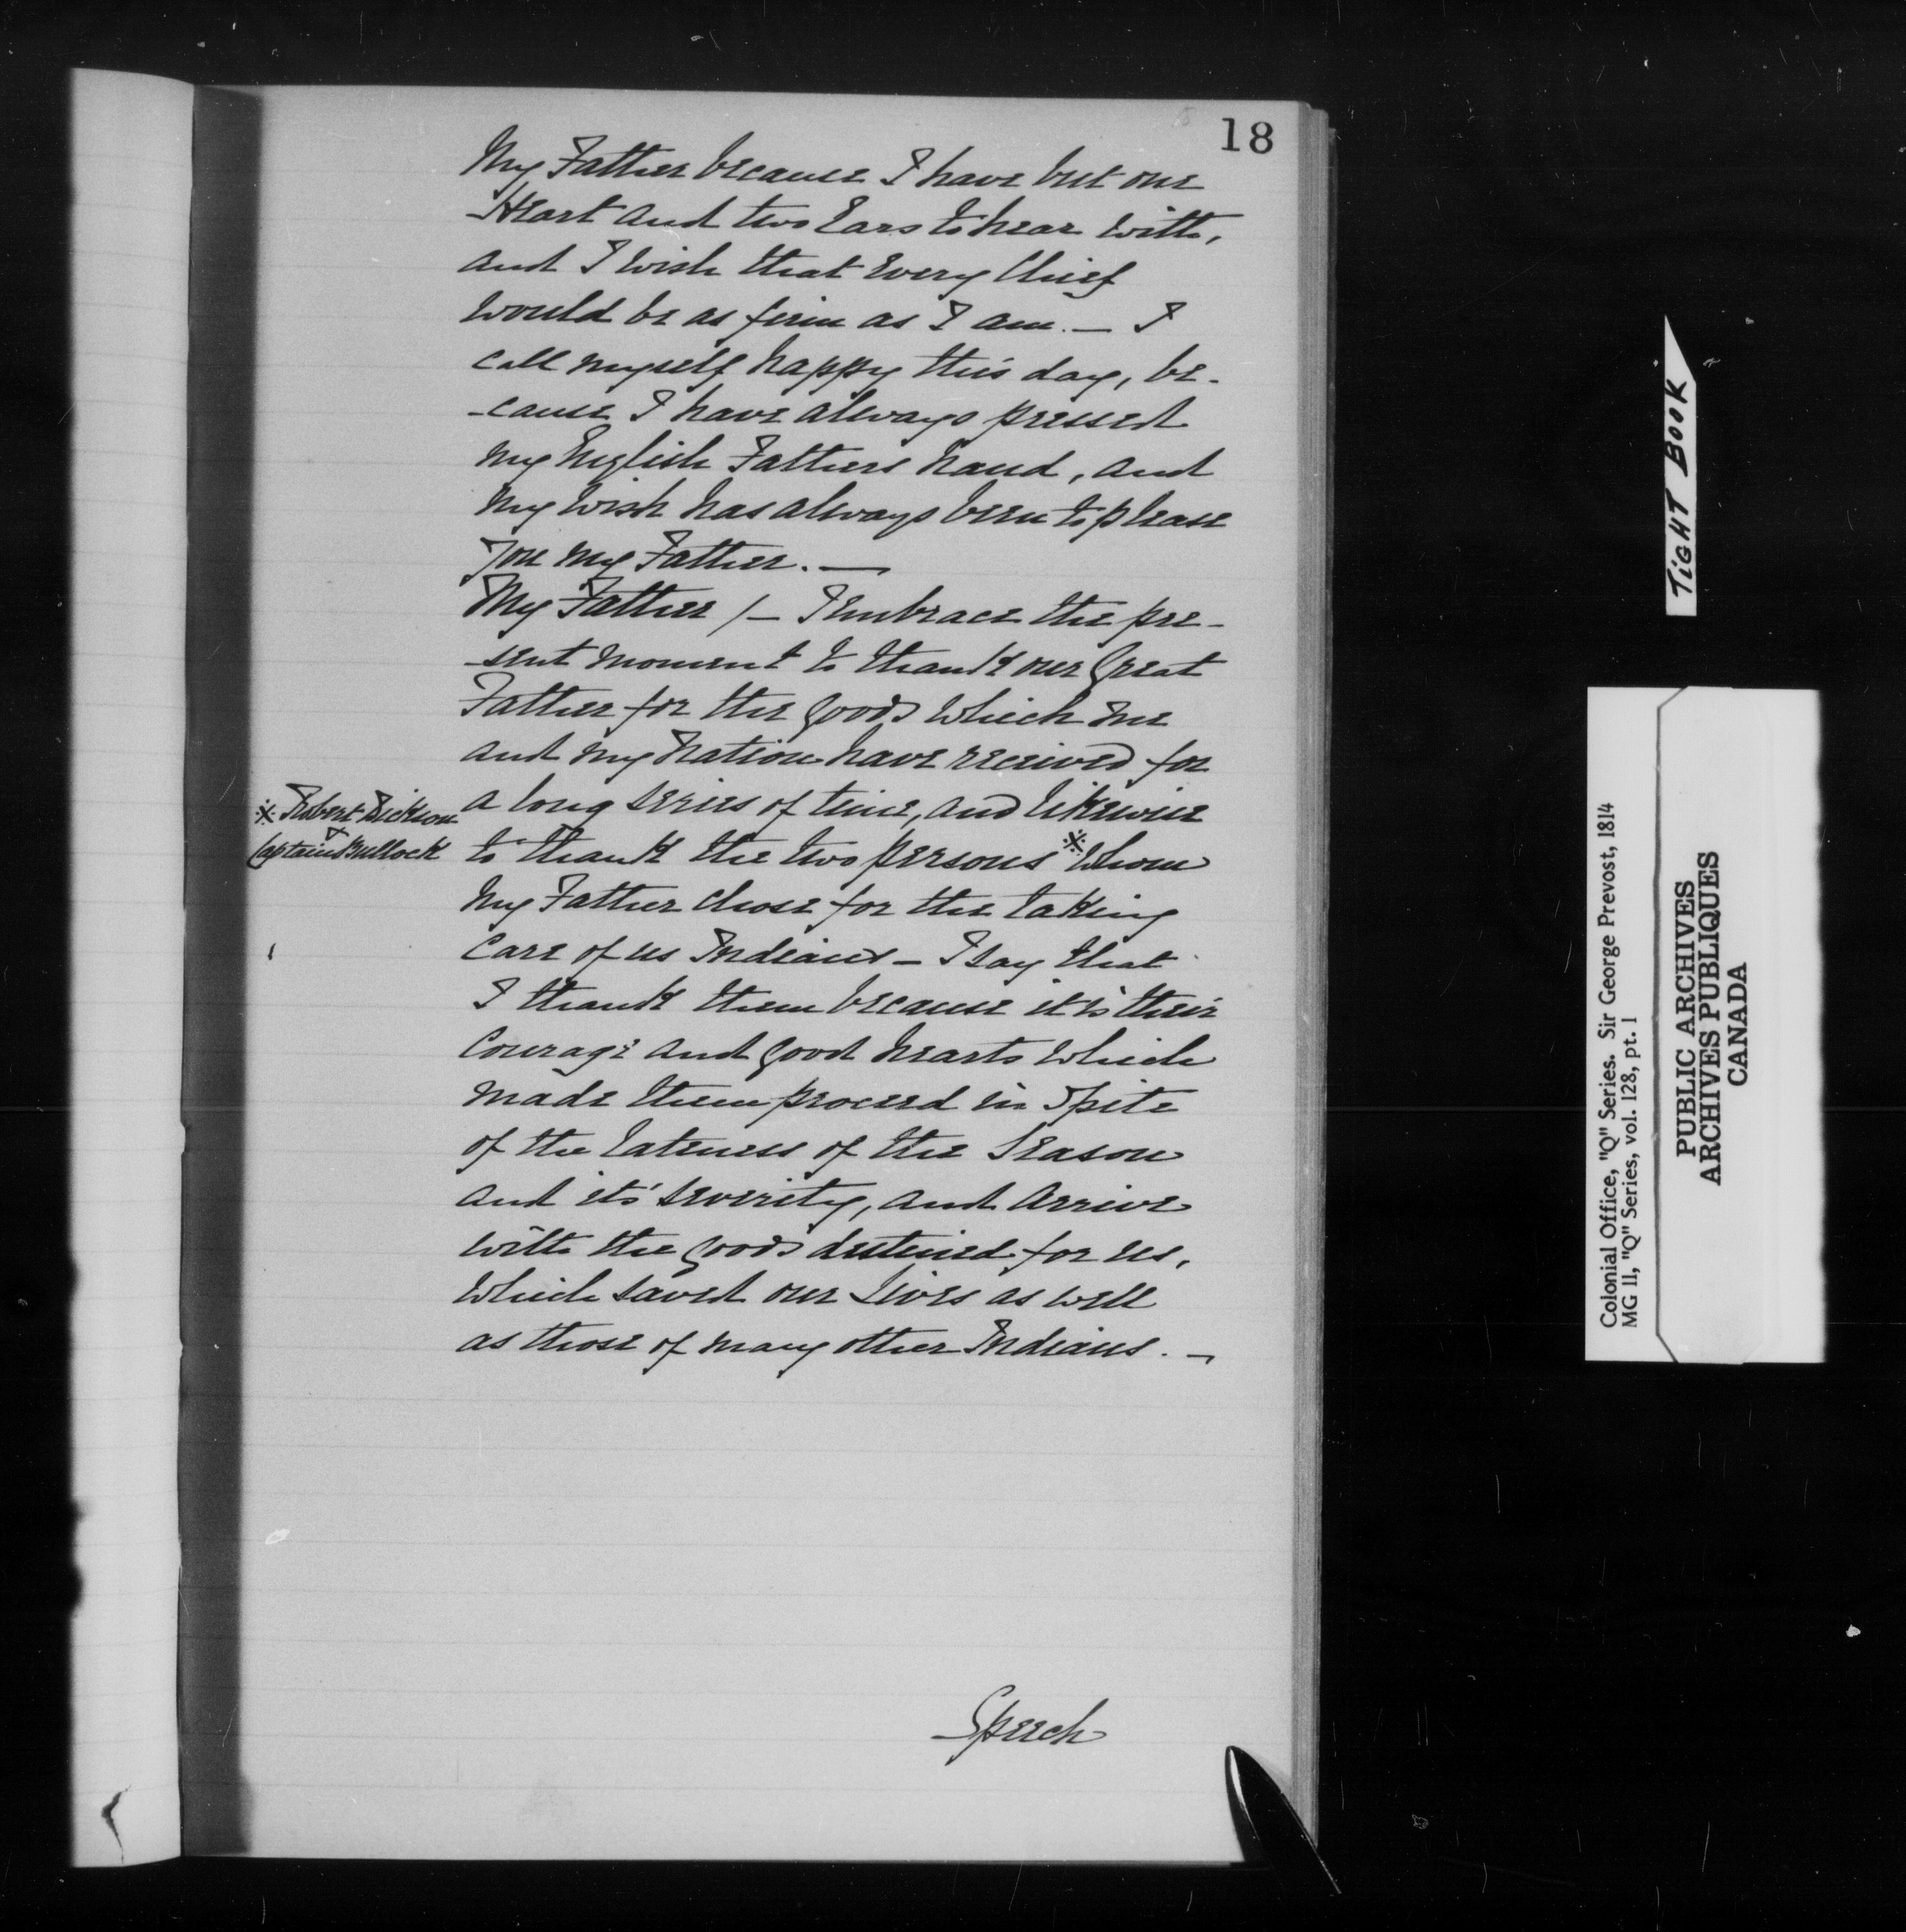 18
My Father because I have but one
Heart and two Ears to hear with,
and I wish that every Chief
would be as firm as I am. — I
call myself happy this day, be-
-cause I have always pressed
my English Fathers hand, and
my wish has always been to please
you my Father. —
My Father / — I embrace the pre-
-sent moment to thank our Great
Father for the goods which me
and my Nation have received for
a long series of time, and likewise
to thank the two persons ※ whom
my Father chose for the taking
care of us Indians — I say that
I thank them because it is their
courage and good hearts which
made them proceed in spite
of the lateness of the Season
and its' severity, and arrive
with the goods destined for us,
which saved our lives as well
as those of many other Indians. —
※ Robert Dickson
&
Captain Bullock
Speech
TIGHT BOOK
Colonial Office, "Q" Series. Sir George Prevost, 1814
MG 11, "Q" Series, vol. 128, pt. 1
PUBLIC ARCHIVES
ARCHIVES PUBLIQUES
CANADA